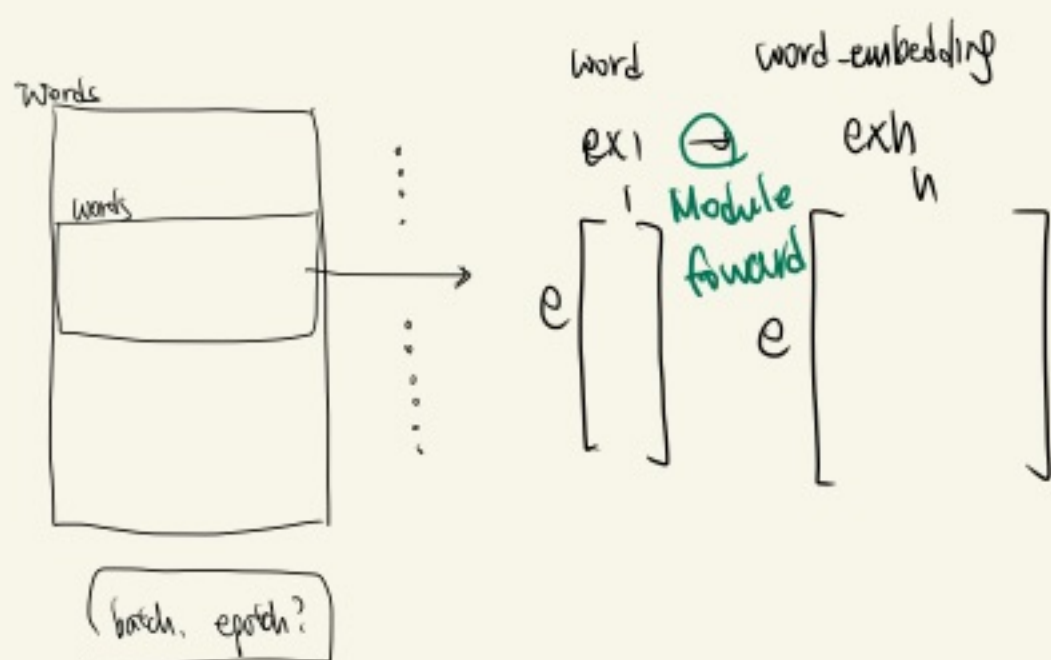 Words
words
batch. epotch?
word word-embedding
ex1 → exh
1 Module h
foward
e e